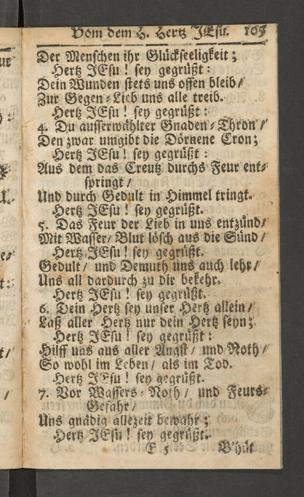 Vom dem H. Hertz JEsu. 105
Der Menschen ihr Glückseeligkeit;
Hertz JEsu! sey gegrüßt:
Dein Wunden stets uns offen bleib/
Zur Gegen-Lieb uns alle treib.
Hertz JEsu! sey gegrüßt:
4. Du ausserwählter Gnaden-Thron/
Den zwar umgibt die Dörnene Cron;
Hertz JEsu! sey gegrüßt:
Aus dem das Creutz durchs Feur ent-
springt/
Und durch Gedult in Himmel tringt.
Hertz JEsu! sey gegrüßt.
5. Das Feur der Lieb in uns entzünd/
Mit Wasser/ Blut lösch aus die Sünd/
Hertz JEsu! sey gegrüßt.
Gedult/ und Demuth uns auch lehr/
Uns all dardurch zu dir bekehr.
Hertz JEsu! sey gegrüßt.
6. Dein Hertz sey unser Hertz allein/
Laß aller Hertz nur dein Hertz seyn;
Hertz JEsu! sey gegrüßt:
Hilff uns aus aller Angst/ und Noth/
So wohl im Leben/ als im Tod.
Hertz JEsu! sey gegrüßt.
7. Vor Wassers-Noth/ und Feurs-
Gefahr/
Uns gnädig allezeit bewahr;
Hertz JEsu! sey gegrüßt.
E 5 B'hüt